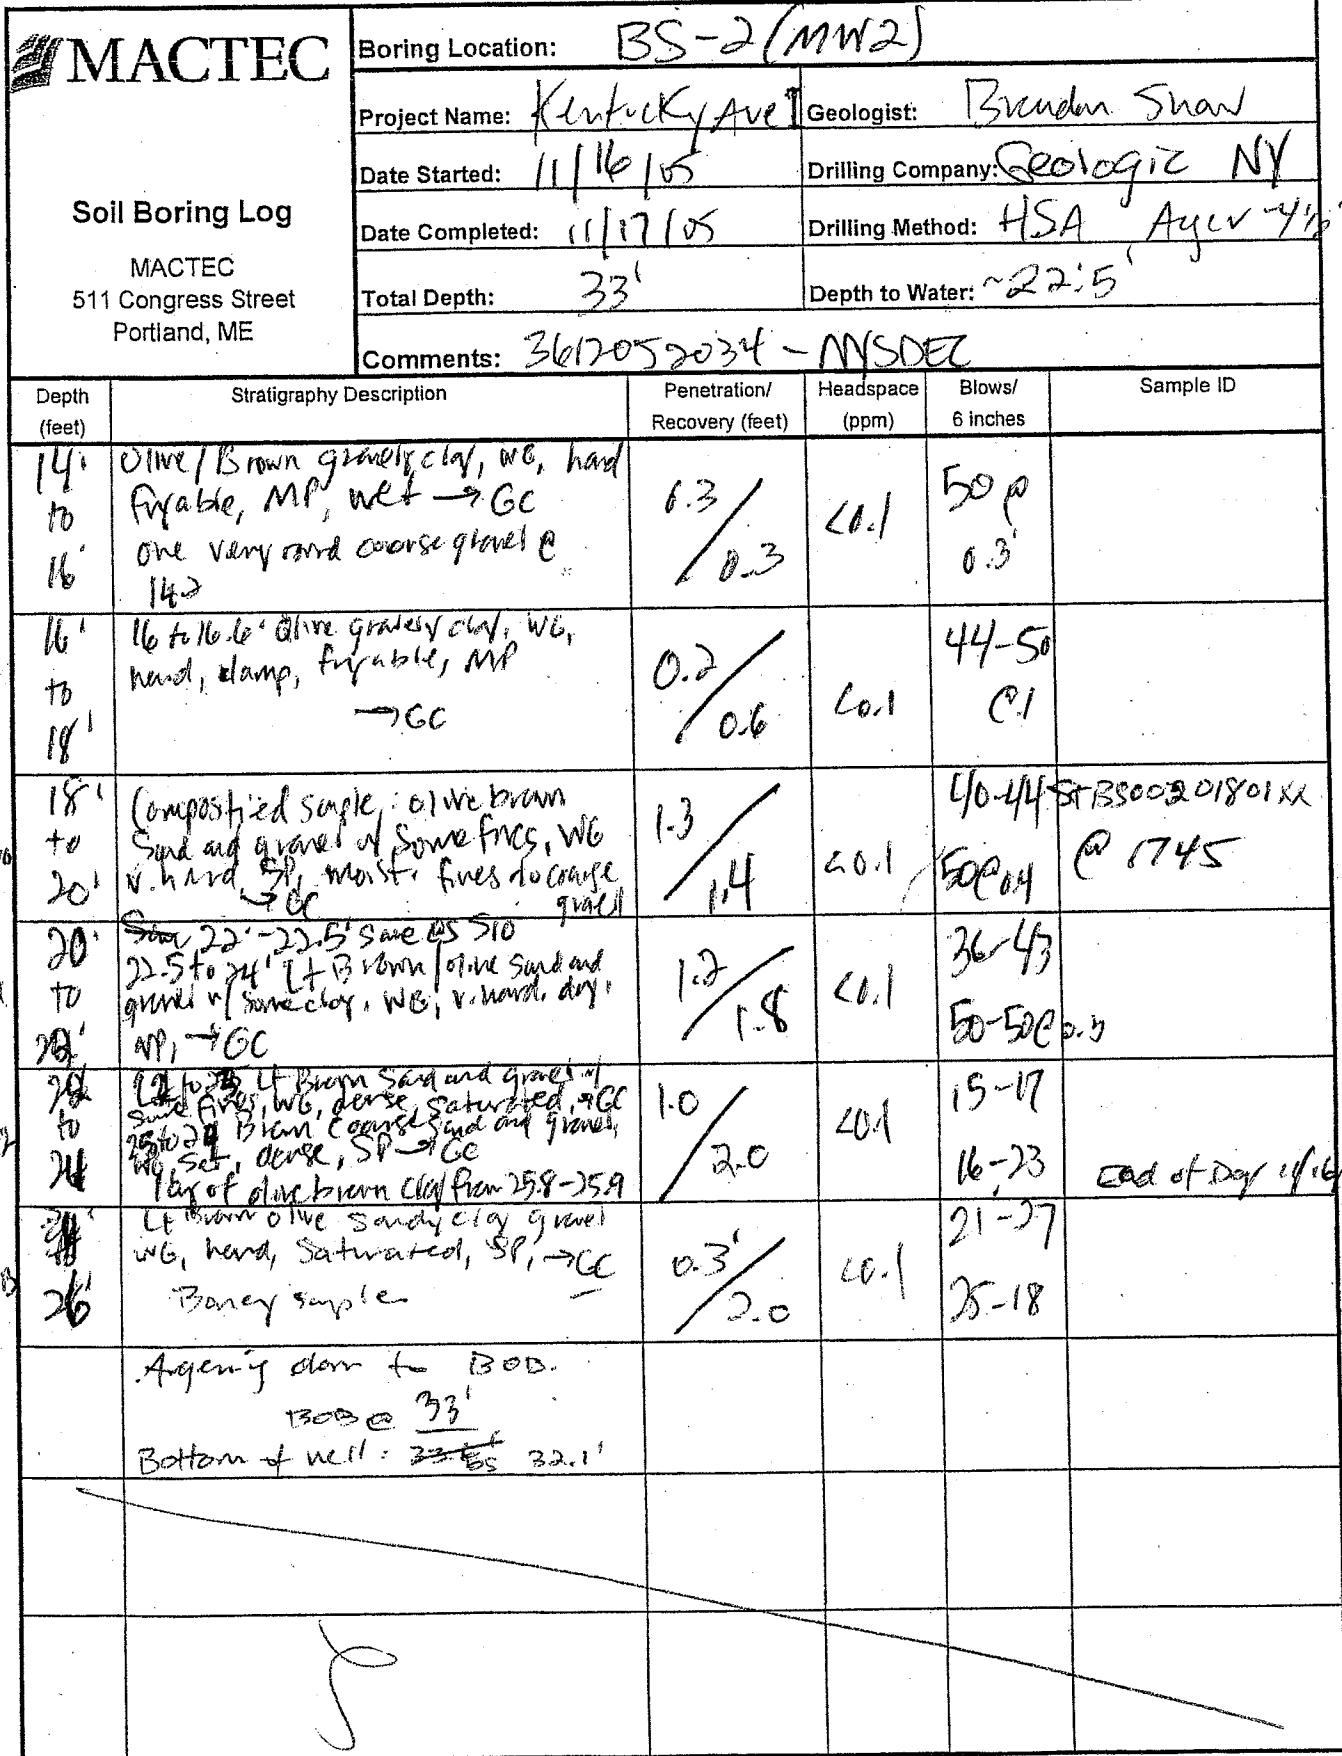 MACTEC
Soil Boring Log
MACTEC
511 Congress Street
Portland, ME
Boring Location: BS-2 (MW2)
Project Name: Kentucky Ave
Geologist: Brendan Shaw
Date Started: 11/16/05
Drilling Company: Geologic NY
Date Completed: 11/17/05
Drilling Method: HSA Auger -4½'
Total Depth: 33'
Depth to Water: ~22.5'
Comments: 3612052034 - NYSDEC
Depth (feet)
Stratigraphy Description
Penetration/ Recovery (feet)
Headspace (ppm)
Blows/ 6 inches
Sample ID
14' to 16'
Olive/Brown gravely clay, WG, hard
fryable, MP, wet → GC
one very round coarse gravel @
14.2
0.3 / 0.3
<0.1
50 @
0.3'
16' to 18'
16 to 16.6' Olive gravely clay, WG,
hard, damp, fryable, MP
→ GC
0.2 / 0.6
<0.1
44-50
@.1
18' to 20'
Compostied sample: olive brown
Sand and gravel w/ some fines, WG
v. hard, SP, moist. fines to coarse
gravel
→ GC
1.3 / 1.4
<0.1
40-44
50@0.4
STBS00201801XX
@ 1745
20' to 22'
22'-22.5' Same as S10
22.5 to 24' Lt Brown/olive Sand and
gravel w/ some clay, WG, v. hard, dry,
NP, → GC
1.2 / 1.8
<0.1
36-43
50-50@0.3
22 to 24
Lt Brown Sand and gravel w/
some fines, WG, dense, saturated, → GC
Brown Coarse Sand and gravel,
WG, Sat, dense, SP → GC
1 lay of olive brown clay from 25.8-25.9
1.0 / 2.0
<0.1
15-17
16-23
End of Day 11/16
26'
Lt Brown olive sandy clay gravel
WG, hard, Saturated, SP, → GC
Boney sample
0.3' / 2.0
<0.1
21-27
25-18
Augering down to BOB.
BOB @ 33'
Bottom of well: 32.1'